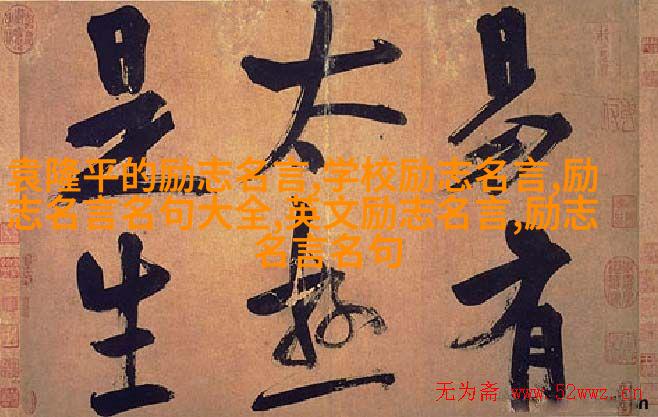 易有
太極
是生
袁隆平的励志名言,学校励志名言,励
志名言名句大全,英文励志名言,励志
名言名句
无为斋 www.52wwz.cn
n